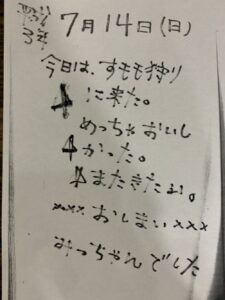 7月14日(日)
今日は、すモモ狩り
に来た。
めっちゃおいし
かった。
またきたよ。
××× おしまい ×××
みっちゃんでした